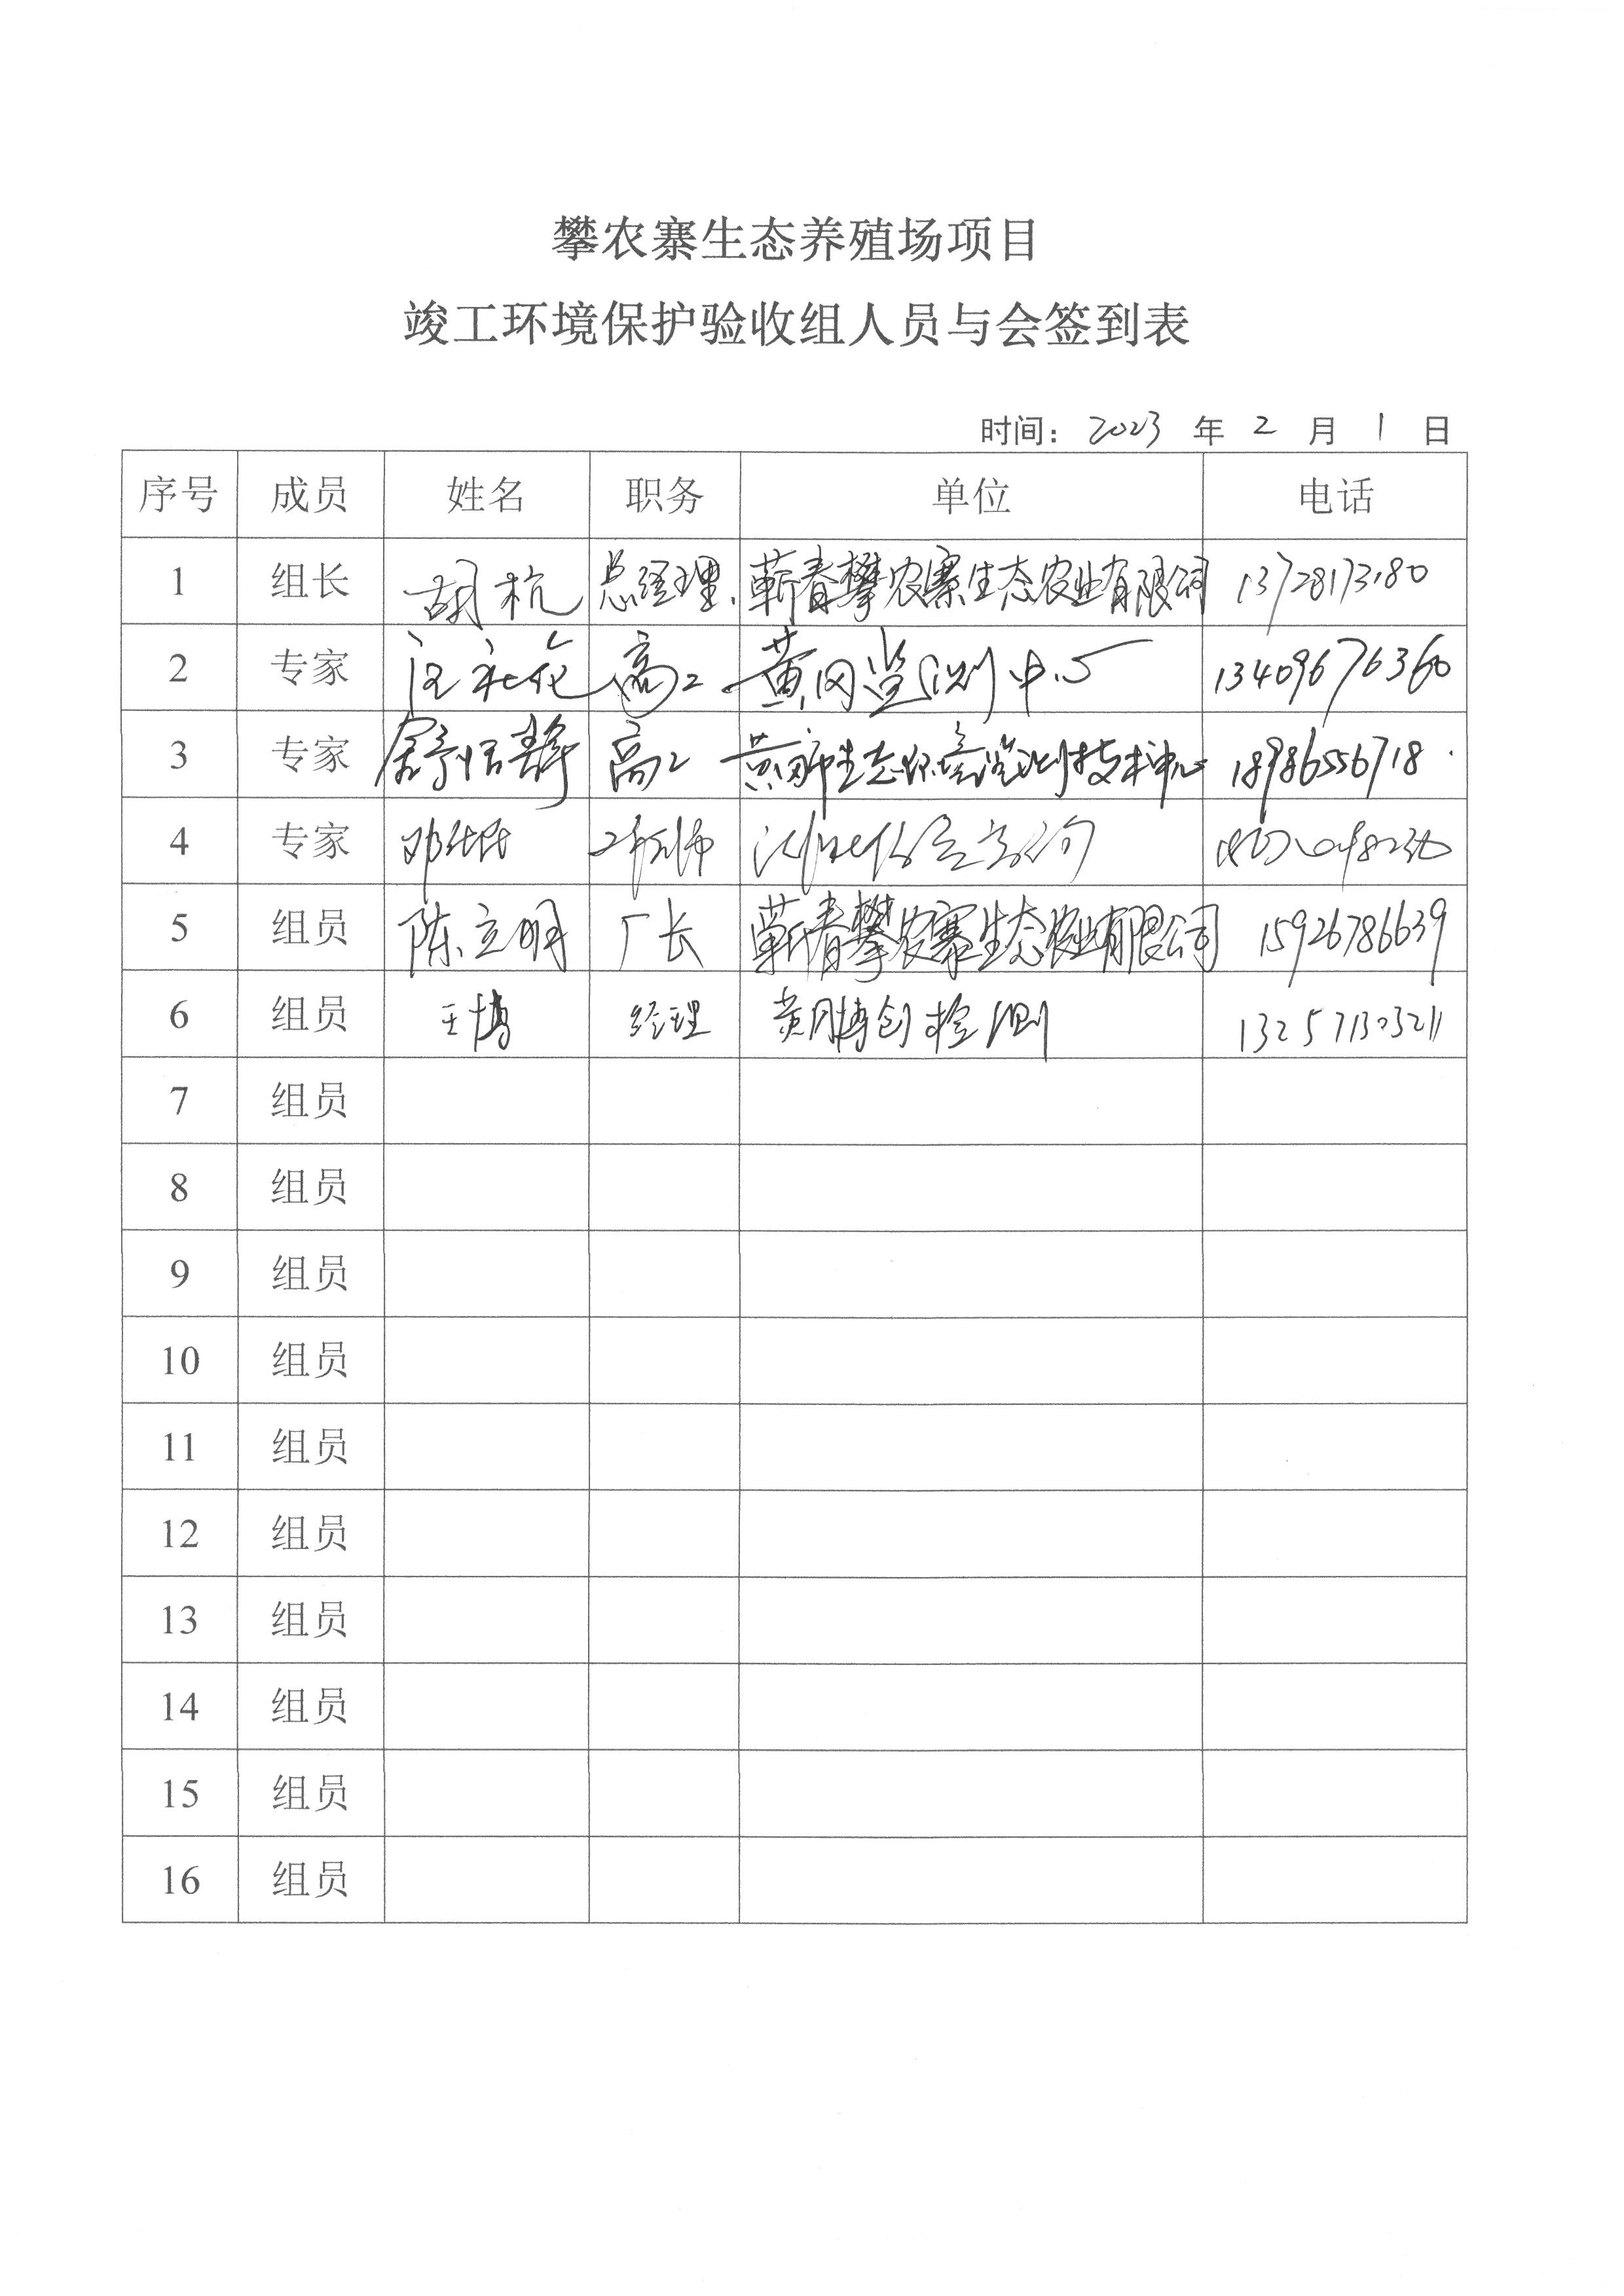 攀农寨生态养殖场项目
竣工环境保护验收组人员与会签到表
时间：2023 年 2 月 1 日
序号 成员 姓名 职务 单位 电话
1 组长 胡杭 总经理 蕲春攀农寨生态农业有限公司
2 专家 高工 黄冈监测中心 13409676360
3 专家 舒怡静 高工 生态环境监测技术中心 18986556718
4 专家 工程师
5 组员 陈立明 厂长 蕲春攀农寨生态农业有限公司 15926786639
6 组员 王博 经理 黄冈博创检测
7 组员
8 组员
9 组员
10 组员
11 组员
12 组员
13 组员
14 组员
15 组员
16 组员